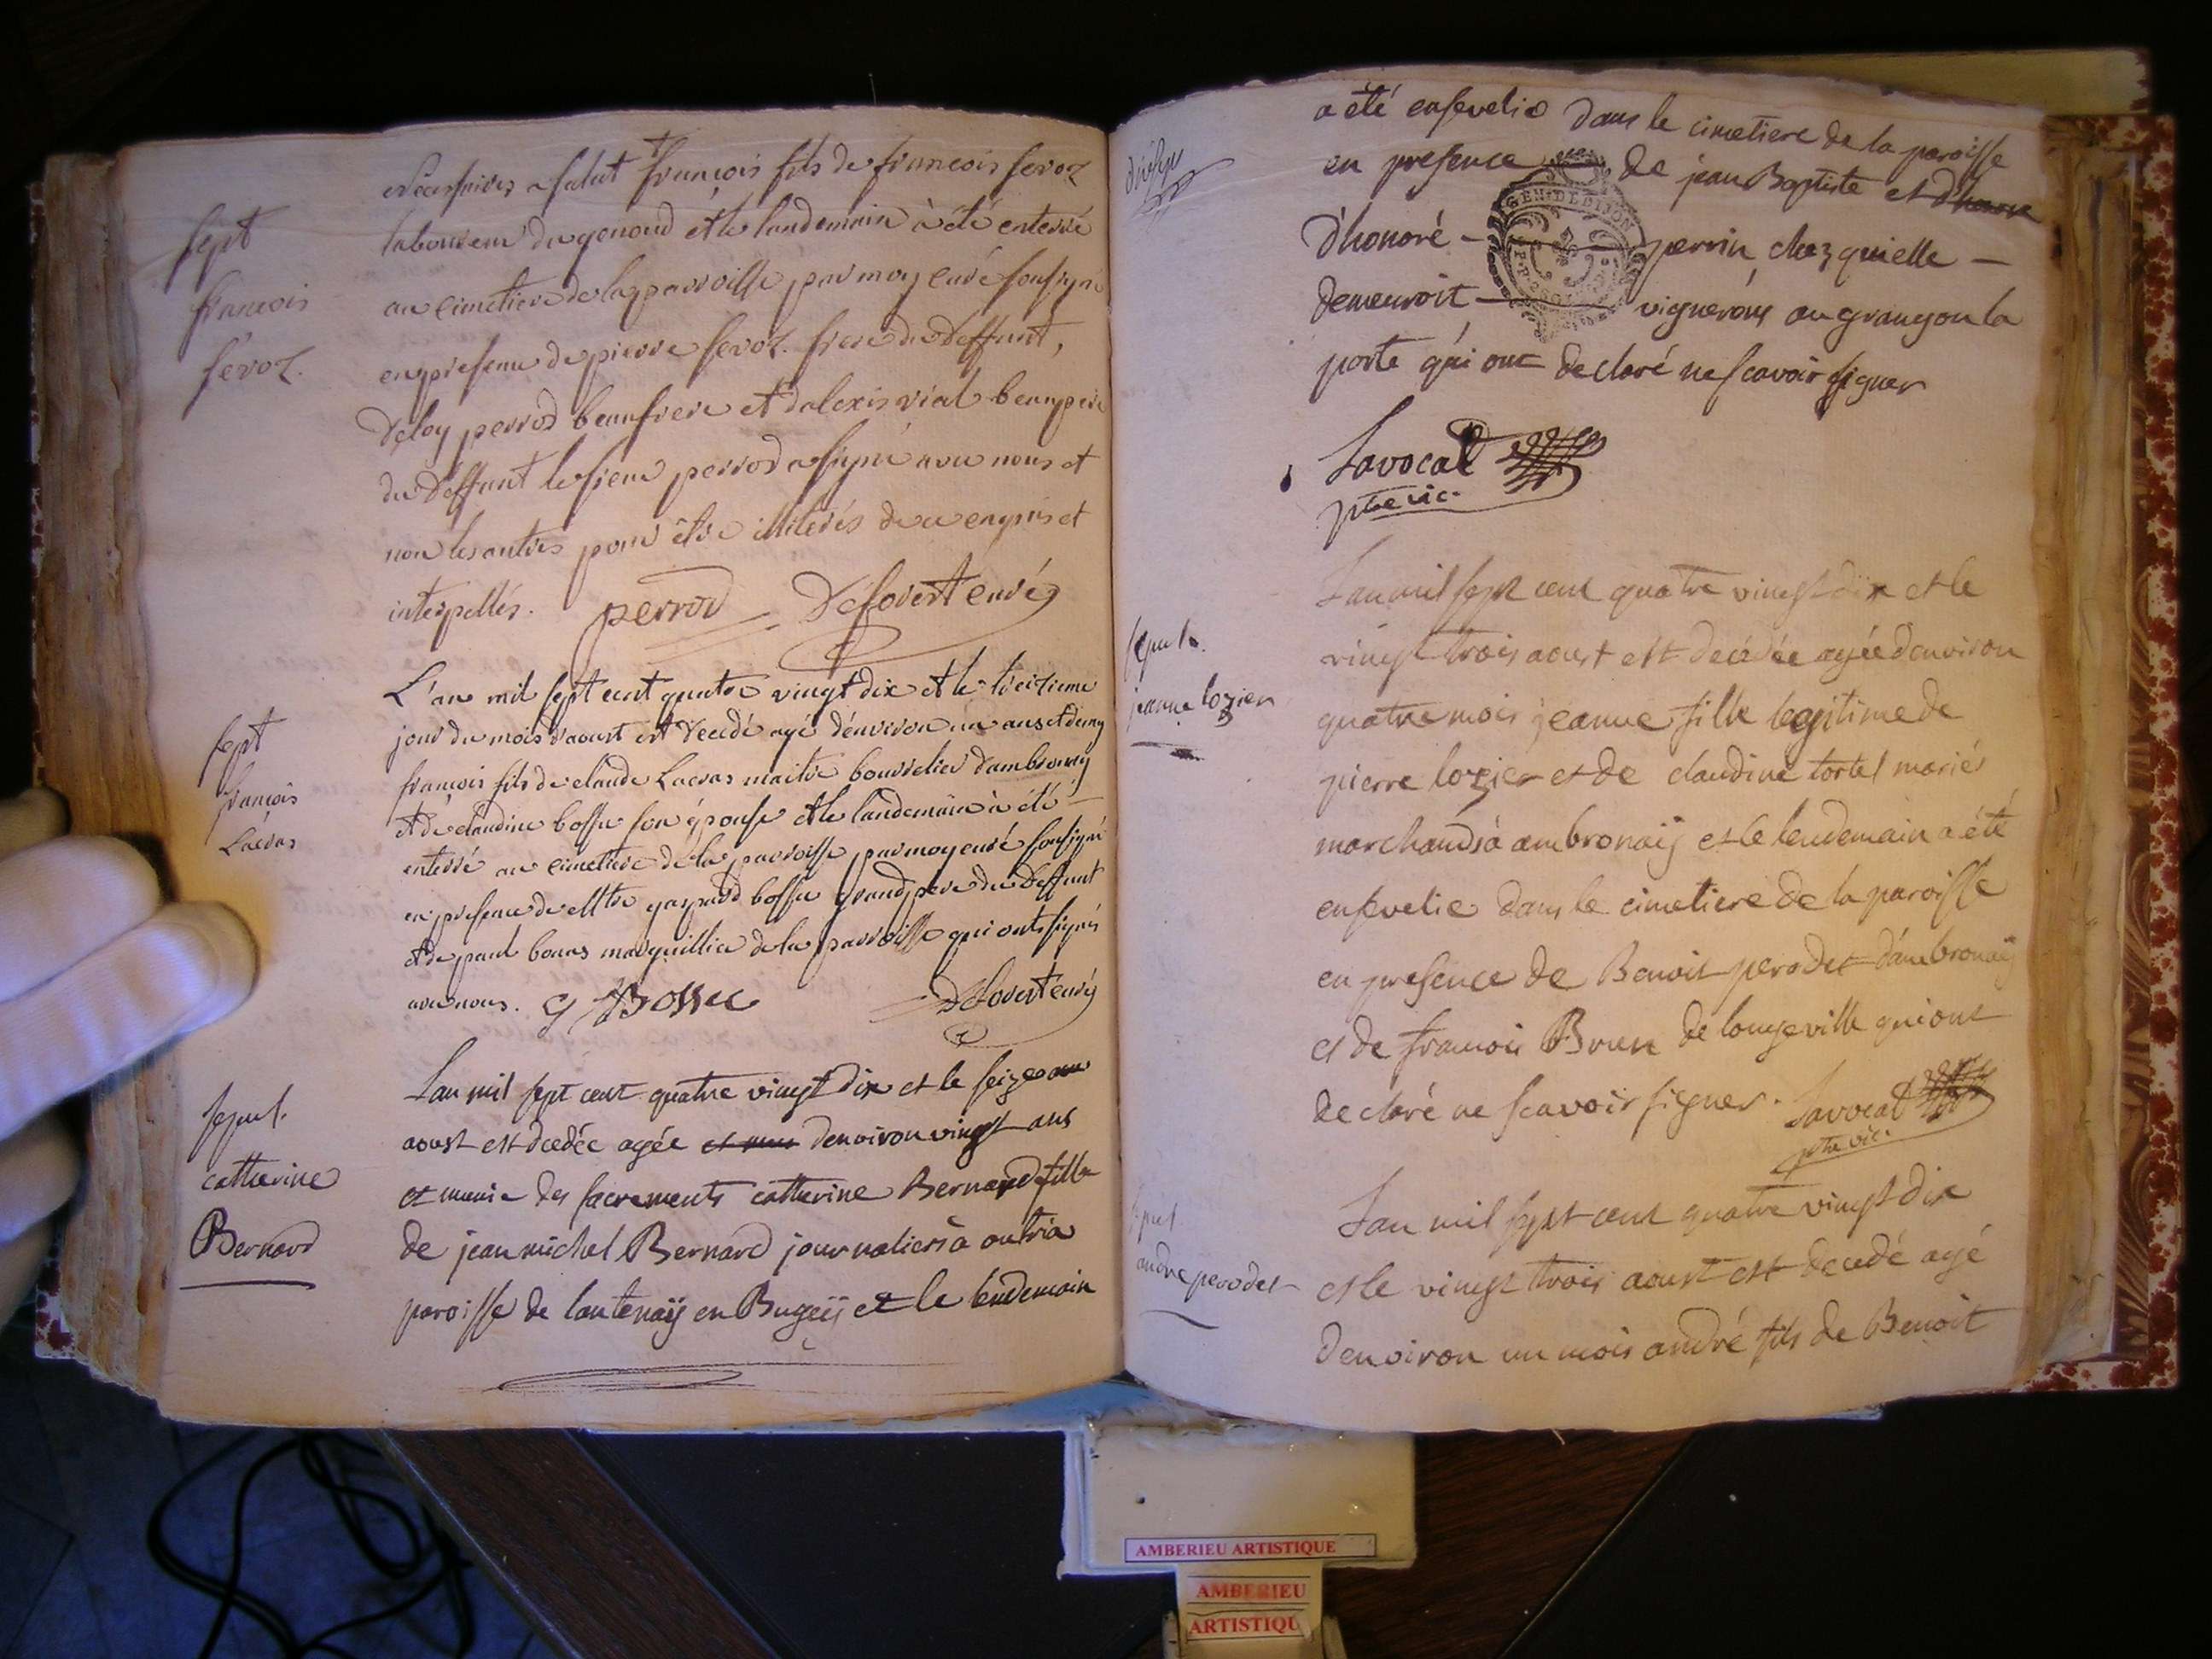 nécessaires a salut françois fils de francois feroz
laboureur du genoud et le landemain à été enterré
au cimetiere de la parroisse par moy curé soussigné
en presence de pierre feroz frere du deffunt,
deloy perrod beaufrere et d'alexis vial beaupere
du deffunt le sieur perrod a signé avec nous et
non les autres pour être illiterés de ce enquis et
interpellés. perrod Deforest curé
sept
francois
feroz.
L'an mil sept cent quatre vingt dix et le treizieme
jour du mois d'aoust est decedé agé d'environ un ans et demy
francois fils de claude Lacras maitre bourrelier d'ambronay
et de claudine bossu son épouse et le landemain à été
enterré au cimetiere de la parroisse par moy curé soussigné
en presence de Mtre gaspard bossu grand pere du deffunt
et de paul bonas marguillier de la parroisse qui ont signés
avec nous. g Bossu Deforest curé
sept
francois
Lacras
Lan mil sept cent quatre vingt dix et le seize
aoust est decedée agée et mun denviron vingt ans
et munie des sacrements catherine Bernard fille
de jean michel Bernard journaliers à outria
paroisse de lantenaÿ en Bugeÿ et le lendemain
sepul.
catherine
Bernard
a été ensevelie dans le cimetiere de la paroisse
en presence de jean Baptiste et d'honore
d'honoré perrin chez qui elle
demeuroit vignerons au grangon la
porte qui ont declaré ne scavoir signer
GEN. DE DIJON
Lavocat
ptre vic.
Lan mil sept cent quatre vingt dix et le
vingt trois aoust est decedée agée denviron
quatre mois jeanne fille legitime de
pierre lozier et de claudine tortel mariés
marchands à ambronaÿ et le lendemain a été
ensevelie dans le cimetiere de la paroisse
en presence de Benoit perodet d'ambronaÿ
et de francois Brun de longeville qui ont
declaré ne scavoir signer. Lavocat
ptre vic.
sepul.
jeanne lozier
Lan mil sept cent quatre vingt dix
et le vingt trois aoust est decedé agé
denviron un mois andré fils de Benoit
sepul
andre perodet
AMBERIEU ARTISTIQUE
AMBERIEU
ARTISTIQU